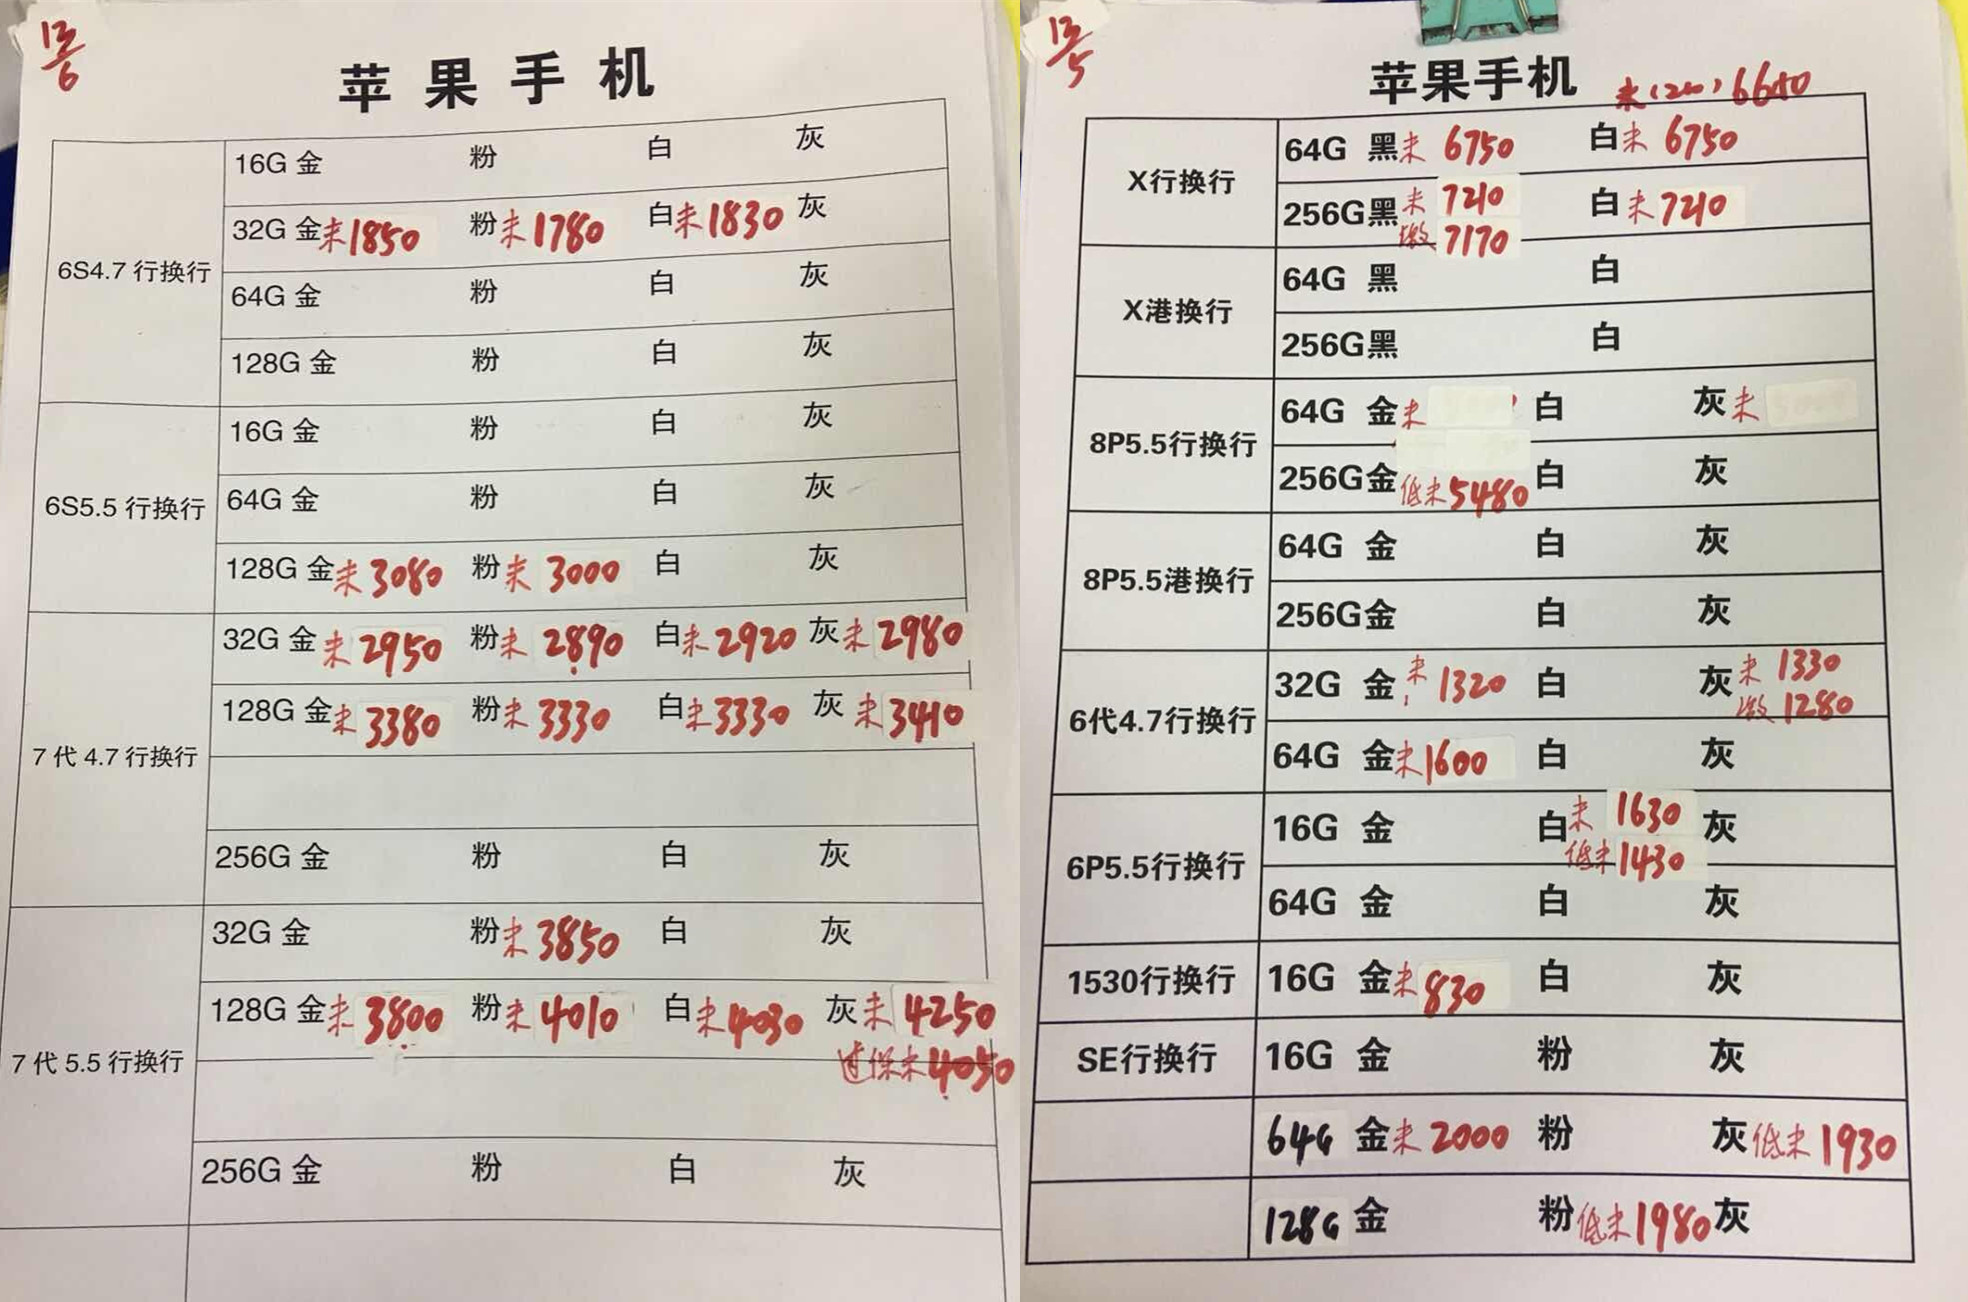 13/6
苹果手机
6S4.7行换行
16G 金 粉 白 灰
32G 金未1850 粉未1780 白未1830 灰
64G 金 粉 白 灰
128G 金 粉 白 灰
6S5.5行换行
16G 金 粉 白 灰
64G 金 粉 白 灰
128G 金未3080 粉未3000 白 灰
7代4.7行换行
32G 金未2950 粉未2890 白未2920 灰未2980
128G 金未3380 粉未3330 白未3330 灰未3410
256G 金 粉 白 灰
7代5.5行换行
32G 金 粉未3850 白 灰
128G 金未3800 粉未4010 白未4030 灰未4250
过保未4050
256G 金 粉 白 灰
13/5
苹果手机
X行换行
64G 黑未6750 白未6750
256G黑未7210 白未7210
激7170
X港换行
64G 黑 白
256G黑 白
8P5.5行换行
64G 金未 白 灰未
256G金 白 灰
低未5480
8P5.5港换行
64G 金 白 灰
256G金 白 灰
6代4.7行换行
32G 金未1320 白 灰未1330
激1280
64G 金未1600 白 灰
6P5.5行换行
16G 金 白未1630 灰
低未1430
64G 金 白 灰
1530行换行
16G 金未830 白 灰
SE行换行
16G 金 粉 灰
64G 金未2000 粉 灰低未1930
128G 金 粉低未1980 灰